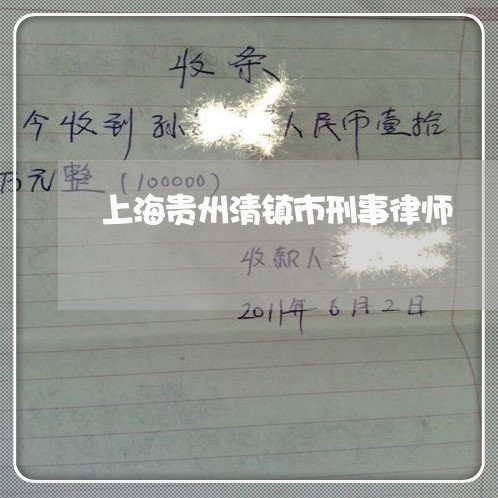 收条
今收到孙 人民币壹拾
万元整(100000)
上海贵州清镇市刑事律师
收款人
2011年6月2日